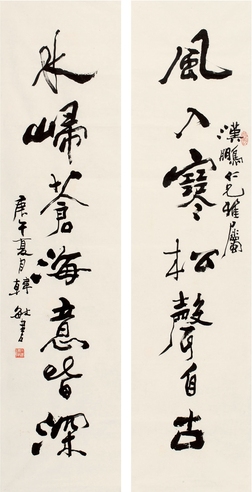 風入寒松聲自古
漢鵬仁兄雅屬
水歸滄海意皆深
庚午夏月韓敏書